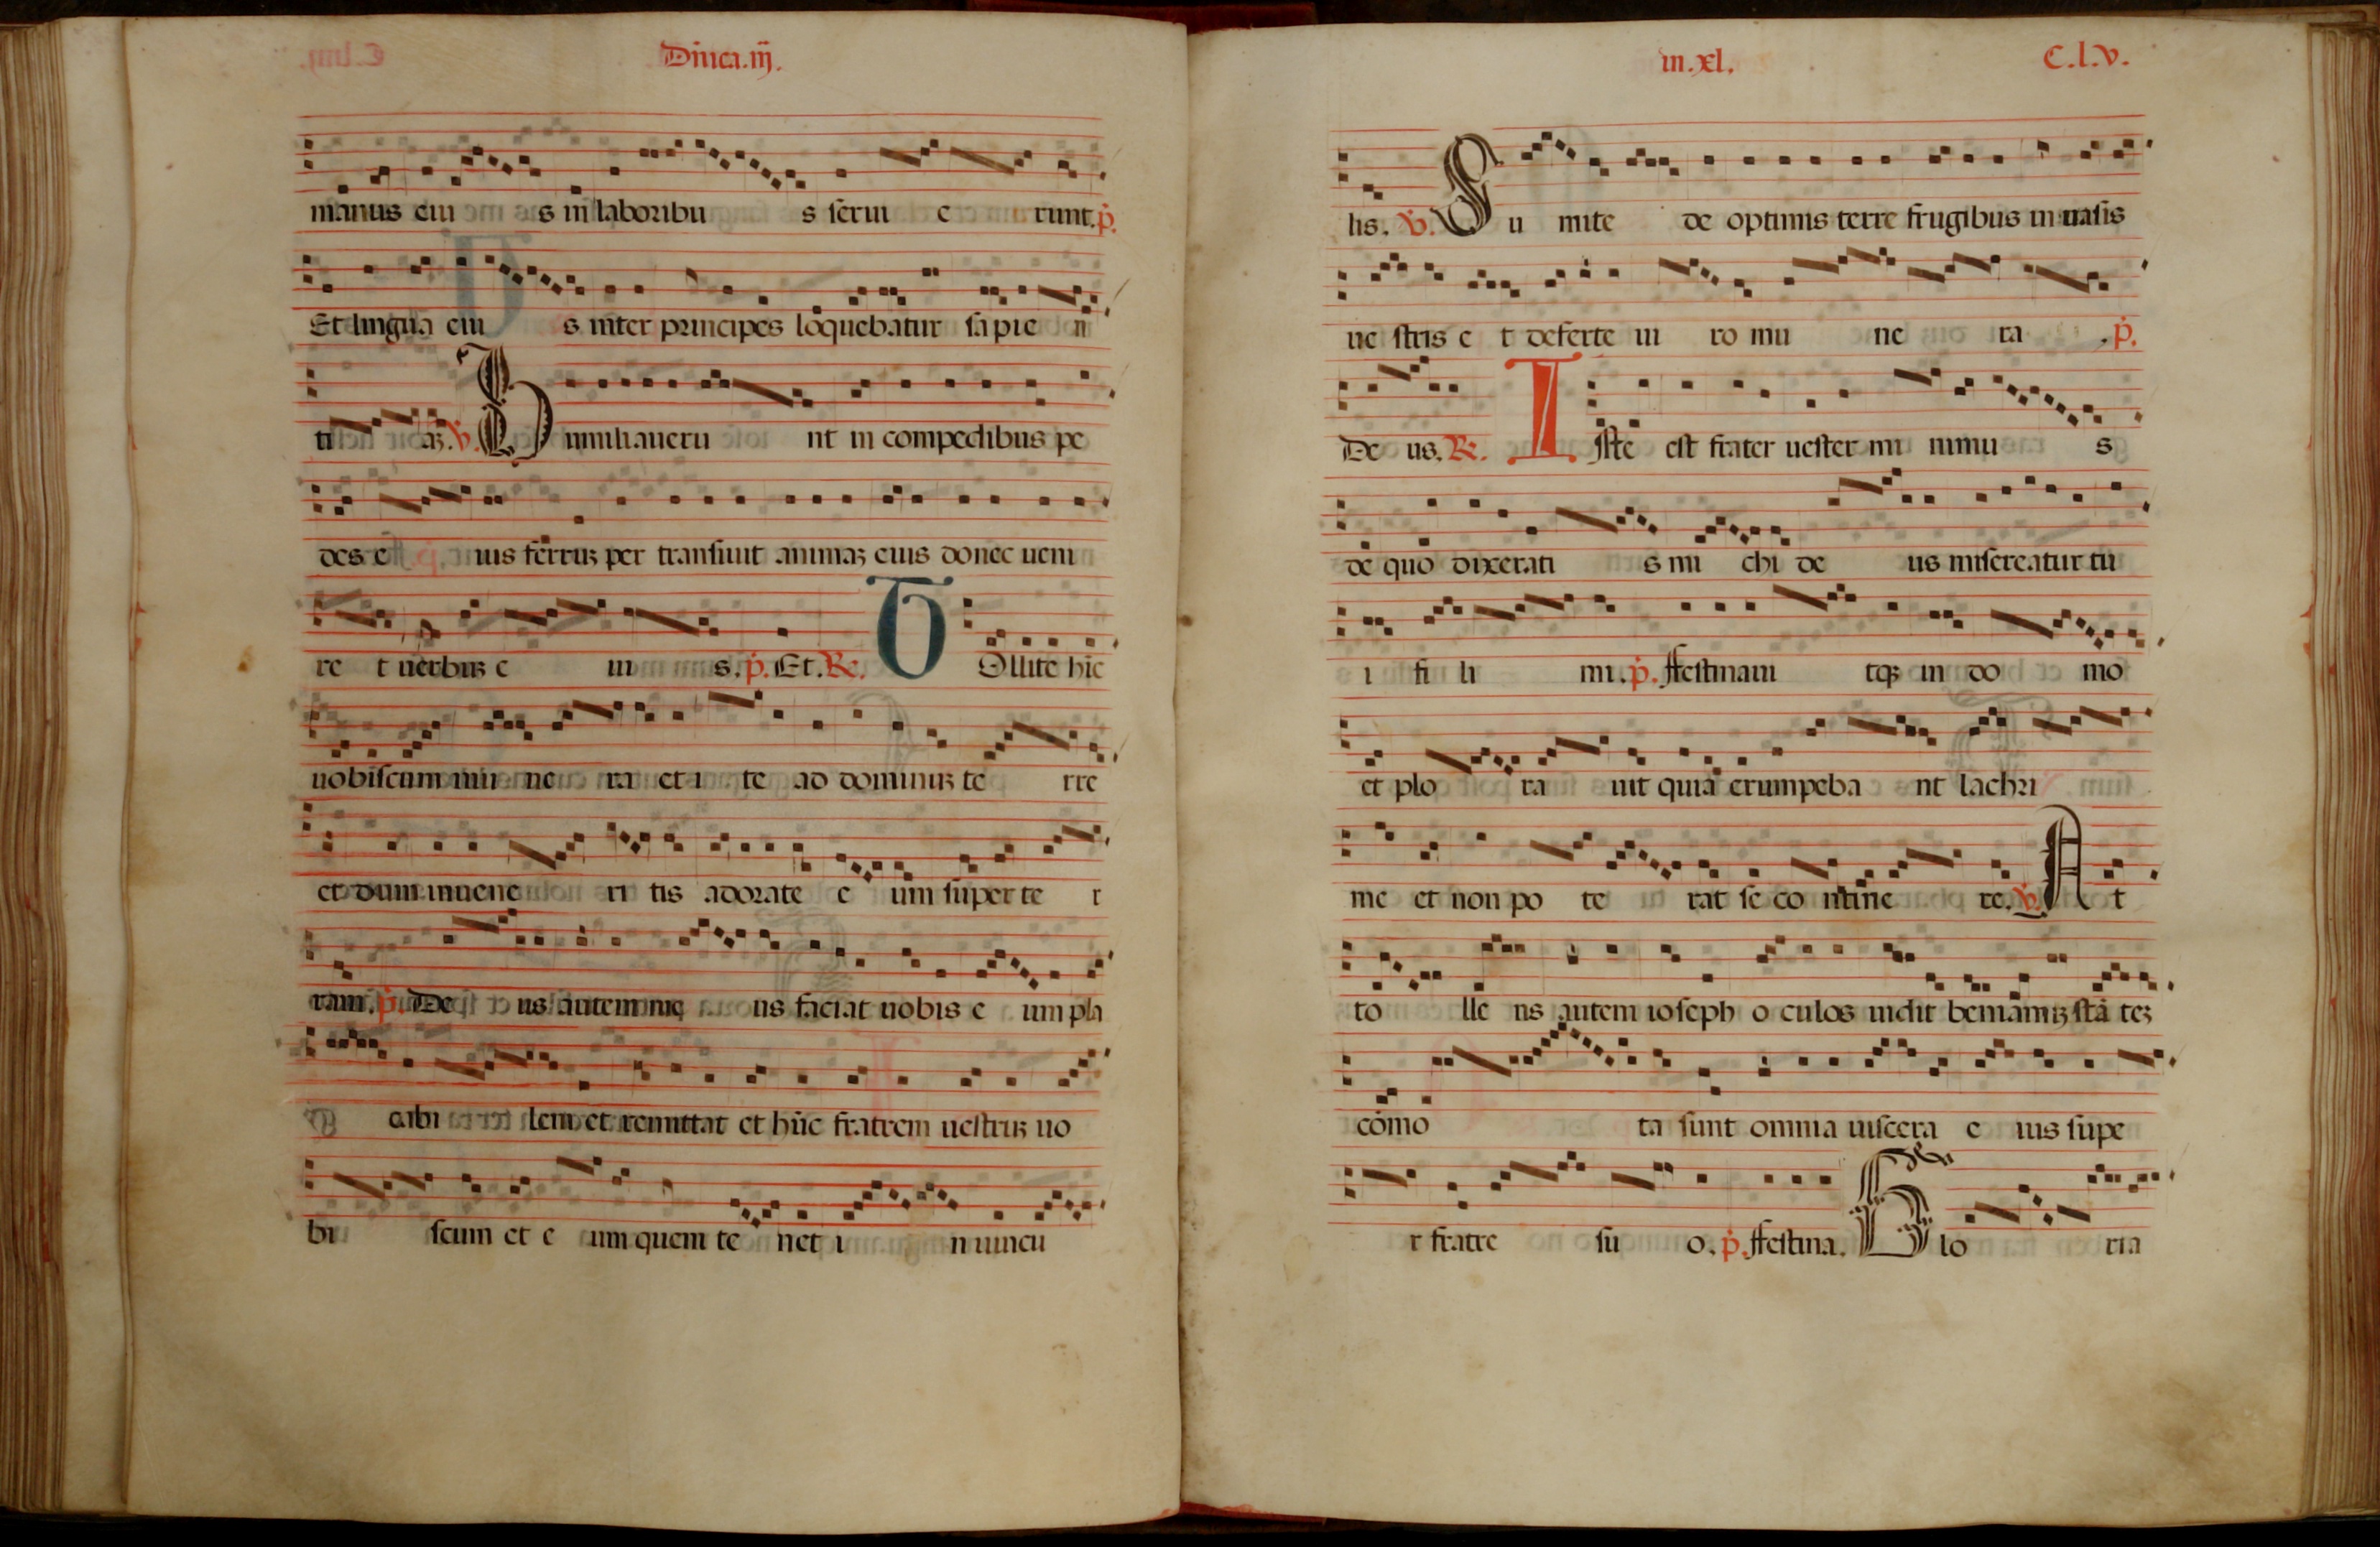 Dn̄ica.iij.
manus eiu s in laboribu s serui e runt.p̄.
Et lingua eiu s inter principes loquebatur sapie n
ti aȝ.v̄. Humiliaueru nt in compedibus pe
des e ius ferruȝ per transiuit animaȝ eius donec ueni
re t uerbuȝ e iu s.p̄.Et.R̄.TOllite hic
uobiscum mu ne ra et i te ad dominuȝ te rre
et dum inuene ri tis adorate e um super te r
ram.p̄.De us autem me us faciat uobis e um pla
cabi lem et remittat et hūc fratrem uestruȝ uo
bi scum et e um quem te net i n uincu
in.xl.
C.l.v.
lis.v̄.Su mite de optimis terre frugibus in uasis
ue stris e t deferte ui ro mu ne ra .p̄.
De us.R̄. Iste est frater uester mi nimu s
de quo dixerati s mi chi de us misereatur tu
i fi li mi.p̄.ffestinaui tqȝ in do mo
et plo ra uit quia erumpeba nt lachri
me et non po te rat se co ntine re.v̄.At
to lle ns autem ioseph o culos uidit beniaminȝ stā teȝ
cōmo ta sunt omnia uiscera e ius supe
r fratre su o.p̄.ffestina. Glo ria